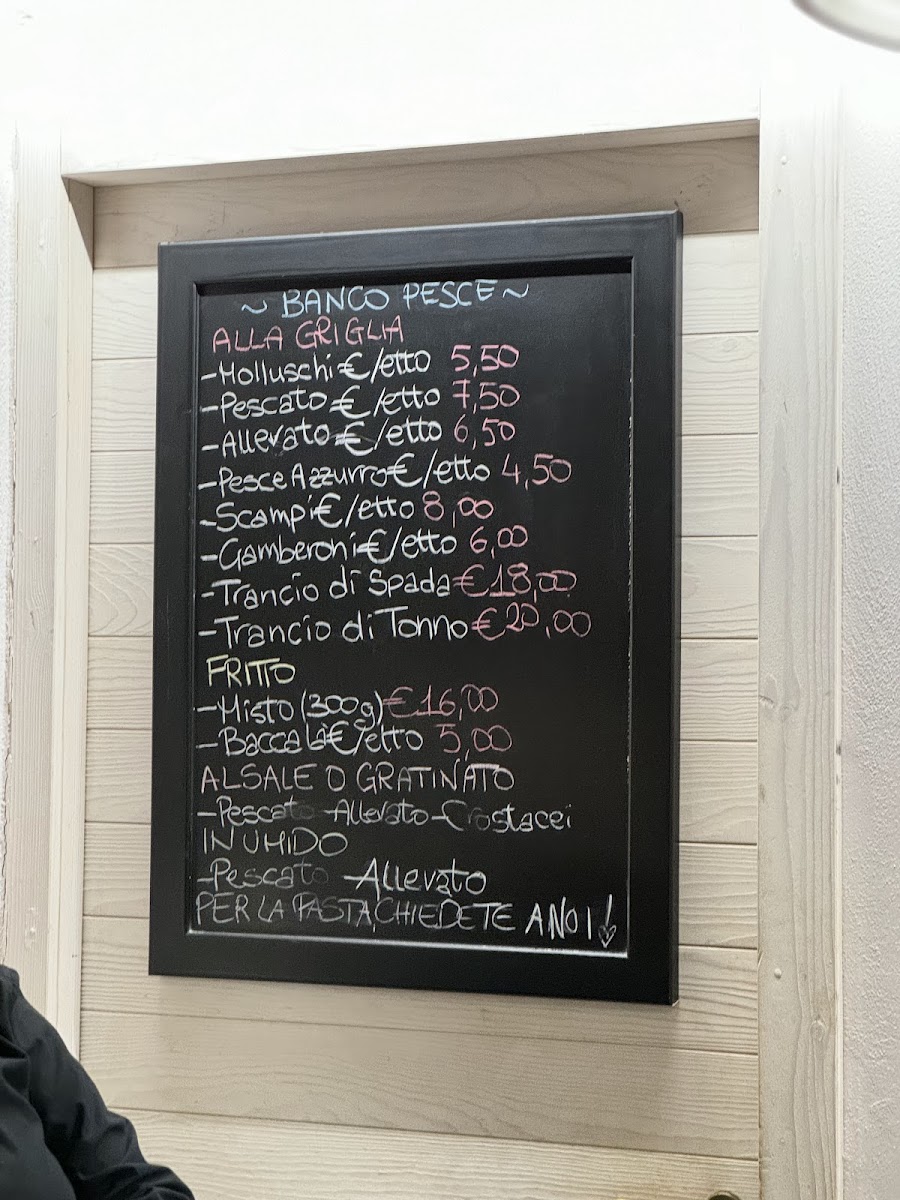 ~ BANCO PESCE ~
ALLA GRIGLIA
- Molluschi €/etto 5,50
- Pescato €/etto 7,50
- Allevato €/etto 6,50
- Pesce Azzurro €/etto 4,50
- Scampi €/etto 8,00
- Gamberoni €/etto 6,00
- Trancio di Spada €18,00
- Trancio di Tonno €20,00
FRITTO
- Misto (300g) €16,00
- Baccalà €/etto 5,00
AL SALE O GRATINATO
- Pescato - Allevato - Crostacei
IN UMIDO
- Pescato - Allevato
PER LA PASTA, CHIEDETE A NOI!